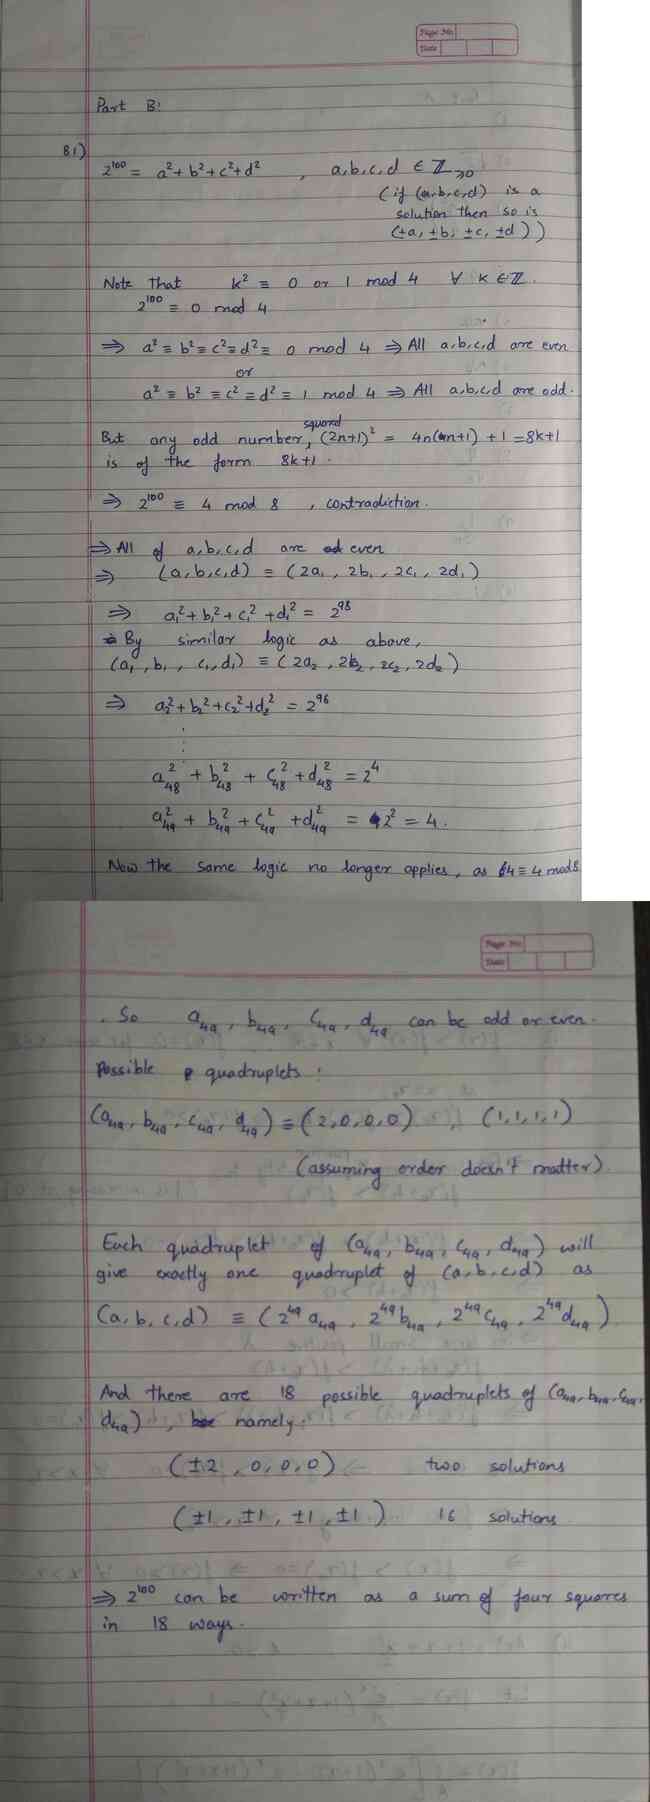 Page No.
Date
Part B:
B1)
2^100 = a² + b² + c² + d² , a,b,c,d ∈ ℤ≥0
(if (a,b,c,d) is a
solution then so is
(±a, ±b, ±c, ±d))
Note that k² ≡ 0 or 1 mod 4 ∀ k ∈ ℤ.
2^100 ≡ 0 mod 4
⇒ a² ≡ b² ≡ c² ≡ d² ≡ 0 mod 4 ⇒ All a,b,c,d are even
or
a² ≡ b² ≡ c² ≡ d² ≡ 1 mod 4 ⇒ All a,b,c,d are odd.
squared
But any odd number, (2n+1)² = 4n(n+1) + 1 = 8k+1
is of the form 8k+1.
⇒ 2^100 ≡ 4 mod 8 , contradiction.
⇒ All of a,b,c,d are even
⇒ (a,b,c,d) ≡ (2a₁, 2b₁, 2c₁, 2d₁)
⇒ a₁² + b₁² + c₁² + d₁² = 2^98
By similar logic as above,
(a₁, b₁, c₁, d₁) ≡ (2a₂, 2b₂, 2c₂, 2d₂)
⇒ a₂² + b₂² + c₂² + d₂² = 2^96
⋮
a₄₈² + b₄₈² + c₄₈² + d₄₈² = 2^4
a₄₉² + b₄₉² + c₄₉² + d₄₉² = 2² = 4.
Now the same logic no longer applies, as 4 ≡ 4 mod 8
Page No.
Date
. So a₄₉, b₄₉, c₄₉, d₄₉ can be odd or even.
Possible quadruplets:
(a₄₉, b₄₉, c₄₉, d₄₉) ≡ (2,0,0,0) , (1,1,1,1)
(assuming order doesn't matter)
Each quadruplet of (a₄₉, b₄₉, c₄₉, d₄₉) will
give exactly one quadruplet of (a,b,c,d) as
(a, b, c, d) ≡ (2^49 a₄₉, 2^49 b₄₉, 2^49 c₄₉, 2^49 d₄₉)
And there are 18 possible quadruplets of (a₄₉, b₄₉, c₄₉,
d₄₉), namely:
(±2, 0, 0, 0) two solutions
(±1, ±1, ±1, ±1) 16 solutions
⇒ 2^100 can be written as a sum of four squares
in 18 ways.